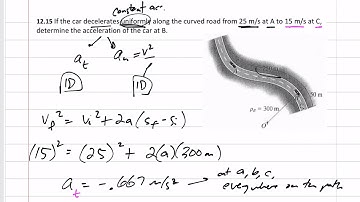 constant acc.
12.15 If the car decelerates uniformly along the curved road from 25 m/s at A to 15 m/s at C,
determine the acceleration of the car at B.
a_t a_n = v²
1D 1D
250 m
50 m
ρ_B = 300 m
O
v_f² = v_i² + 2a(s_f - s_i)
(15)² = (25)² + 2(a)(300m)
a_t = -.667 m/s² → at a, b, c,
everywhere on the path